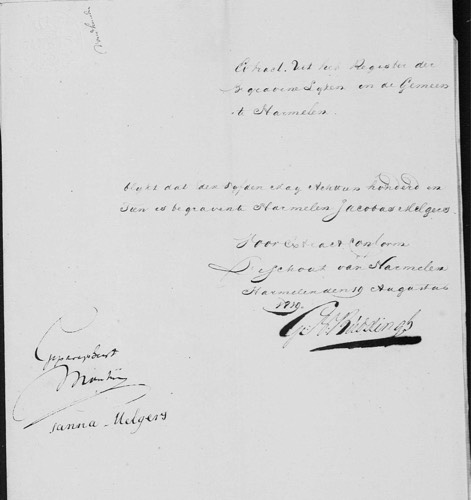 Extract Uit het Register der
begravene Lyken in de Gemeen
te Harmelen.
blykt dat den Mey Achttien honderd en
tien is begraven te Harmelen Jacobus Melgers.
Voor Extract Conform
De Schout van Harmelen
Harmelen den 19 Augustus
1819.
Geparapheert
Janna Melgers